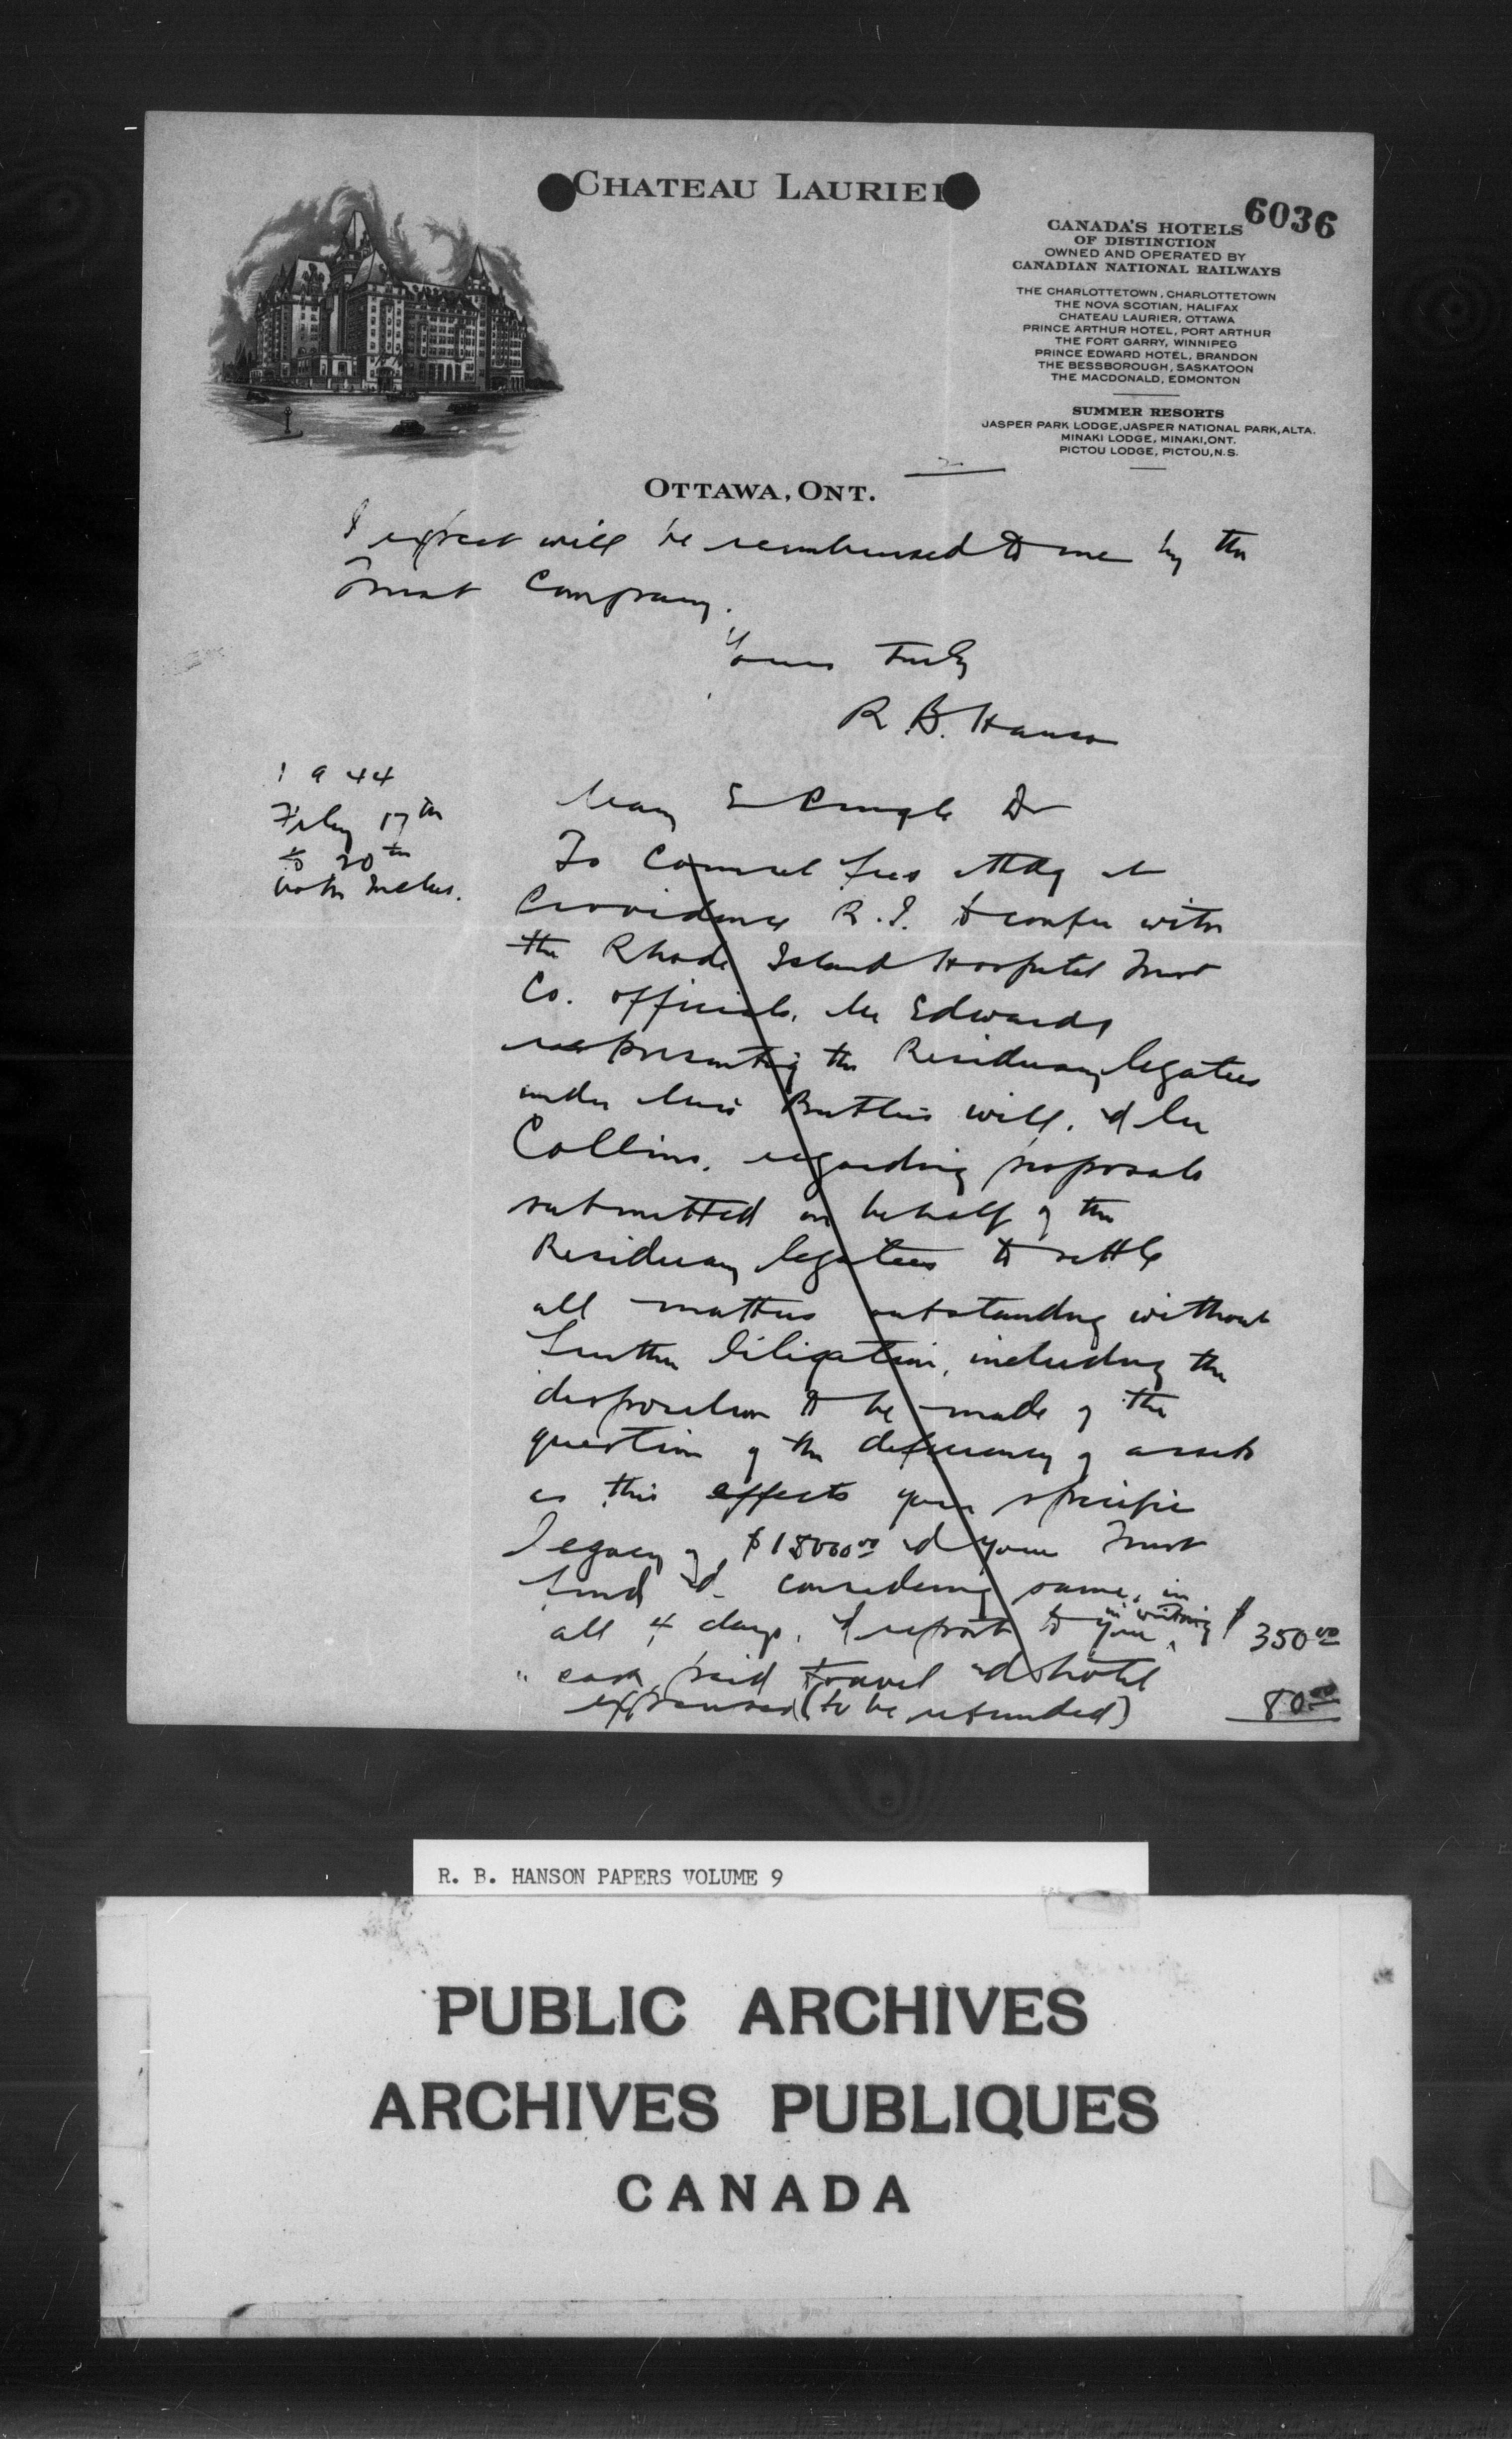 CHATEAU LAURIER
6036
CANADA'S HOTELS
OF DISTINCTION
OWNED AND OPERATED BY
CANADIAN NATIONAL RAILWAYS
THE CHARLOTTETOWN, CHARLOTTETOWN
THE NOVA SCOTIAN, HALIFAX
CHATEAU LAURIER, OTTAWA
PRINCE ARTHUR HOTEL, PORT ARTHUR
THE FORT GARRY, WINNIPEG
PRINCE EDWARD HOTEL, BRANDON
THE BESSBOROUGH, SASKATOON
THE MACDONALD, EDMONTON
SUMMER RESORTS
JASPER PARK LODGE, JASPER NATIONAL PARK, ALTA.
MINAKI LODGE, MINAKI, ONT.
PICTOU LODGE, PICTOU, N.S.
2
OTTAWA, ONT.
I expect will be reimbursed to me by the
Trust Company.
Yours truly
R B. Hanson
1944
Feby 17th
to 20th
both Inclus.
Mary E Dr
To Counsel fees attdg at
Providence R.I. to confer with
the Rhode Island Hospital Trust
Co. officials, Mr Edwards
representing the Residuary legatees
under Miss Butler's will, & Mr
Collins, regarding proposals
submitted on behalf of the
Residuary legatees to settle
all matters outstanding without
further litigation, including the
disposition to be made of the
question of the deficiency of assets
as this effects your specific
legacy of $15000.00 & your Trust
fund & considering same, in
all 4 days, & report to you in writing $ 350.00
" cash paid travel & hotel
expenses (to be refunded) 80.00
R. B. HANSON PAPERS VOLUME 9
PUBLIC ARCHIVES
ARCHIVES PUBLIQUES
CANADA